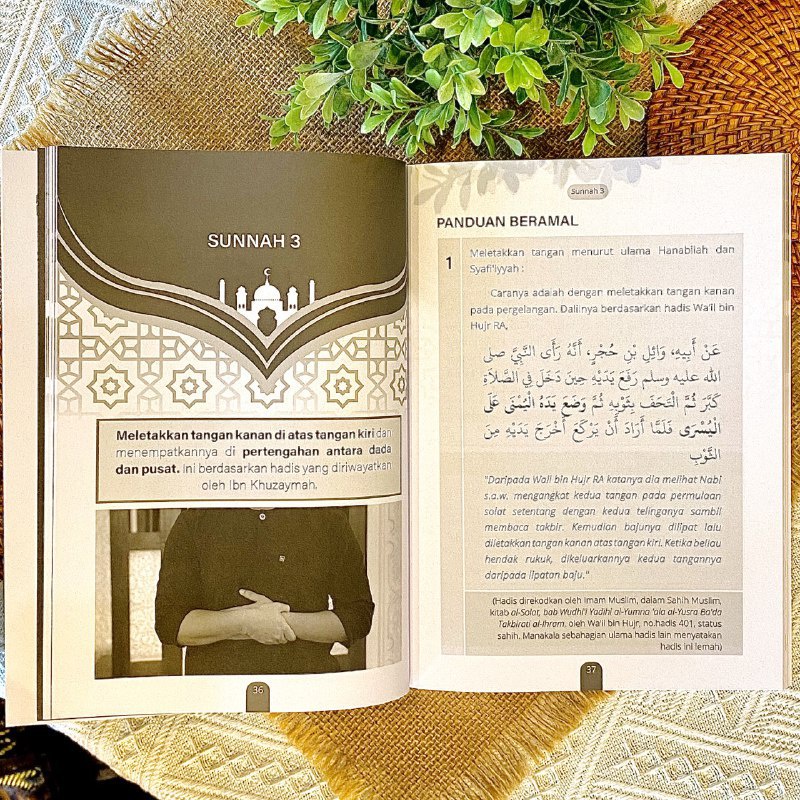 SUNNAH 3
Meletakkan tangan kanan di atas tangan kiri dan
menempatkannya di pertengahan antara dada
dan pusat. Ini berdasarkan hadis yang diriwayatkan
oleh Ibn Khuzaymah.
36
Sunnah 3
PANDUAN BERAMAL
1
Meletakkan tangan menurut ulama Hanabilah dan
Syafi'iyyah :
Caranya adalah dengan meletakkan tangan kanan
pada pergelangan. Dalilnya berdasarkan hadis Wa'il bin
Hujr RA,
عَنْ أَبِيهِ، وَائِلِ بْنِ حُجْرٍ، أَنَّهُ رَأَى النَّبِيَّ صلى
الله عليه وسلم رَفَعَ يَدَيْهِ حِينَ دَخَلَ فِي الصَّلاَةِ
كَبَّرَ ثُمَّ الْتَحَفَ بِثَوْبِهِ ثُمَّ وَضَعَ يَدَهُ الْيُمْنَى عَلَى
الْيُسْرَى فَلَمَّا أَرَادَ أَنْ يَرْكَعَ أَخْرَجَ يَدَيْهِ مِنَ
الثَّوْبِ
"Daripada Wail bin Hujr RA katanya dia melihat Nabi
s.a.w. mengangkat kedua tangan pada permulaan
solat setentang dengan kedua telinganya sambil
membaca takbir. Kemudian bajunya dilipat lalu
diletakkan tangan kanan atas tangan kiri. Ketika beliau
hendak rukuk, dikeluarkannya kedua tangannya
daripada lipatan baju."
(Hadis direkodkan oleh Imam Muslim, dalam Sahih Muslim,
kitab al-Solat, bab Wudhi'i Yadihi al-Yumna 'ala al-Yusra Ba'da
Takbirati al-Ihram, oleh Wa'il bin Hujr, no.hadis 401, status
sahih. Manakala sebahagian ulama hadis lain menyatakan
hadis ini lemah)
37